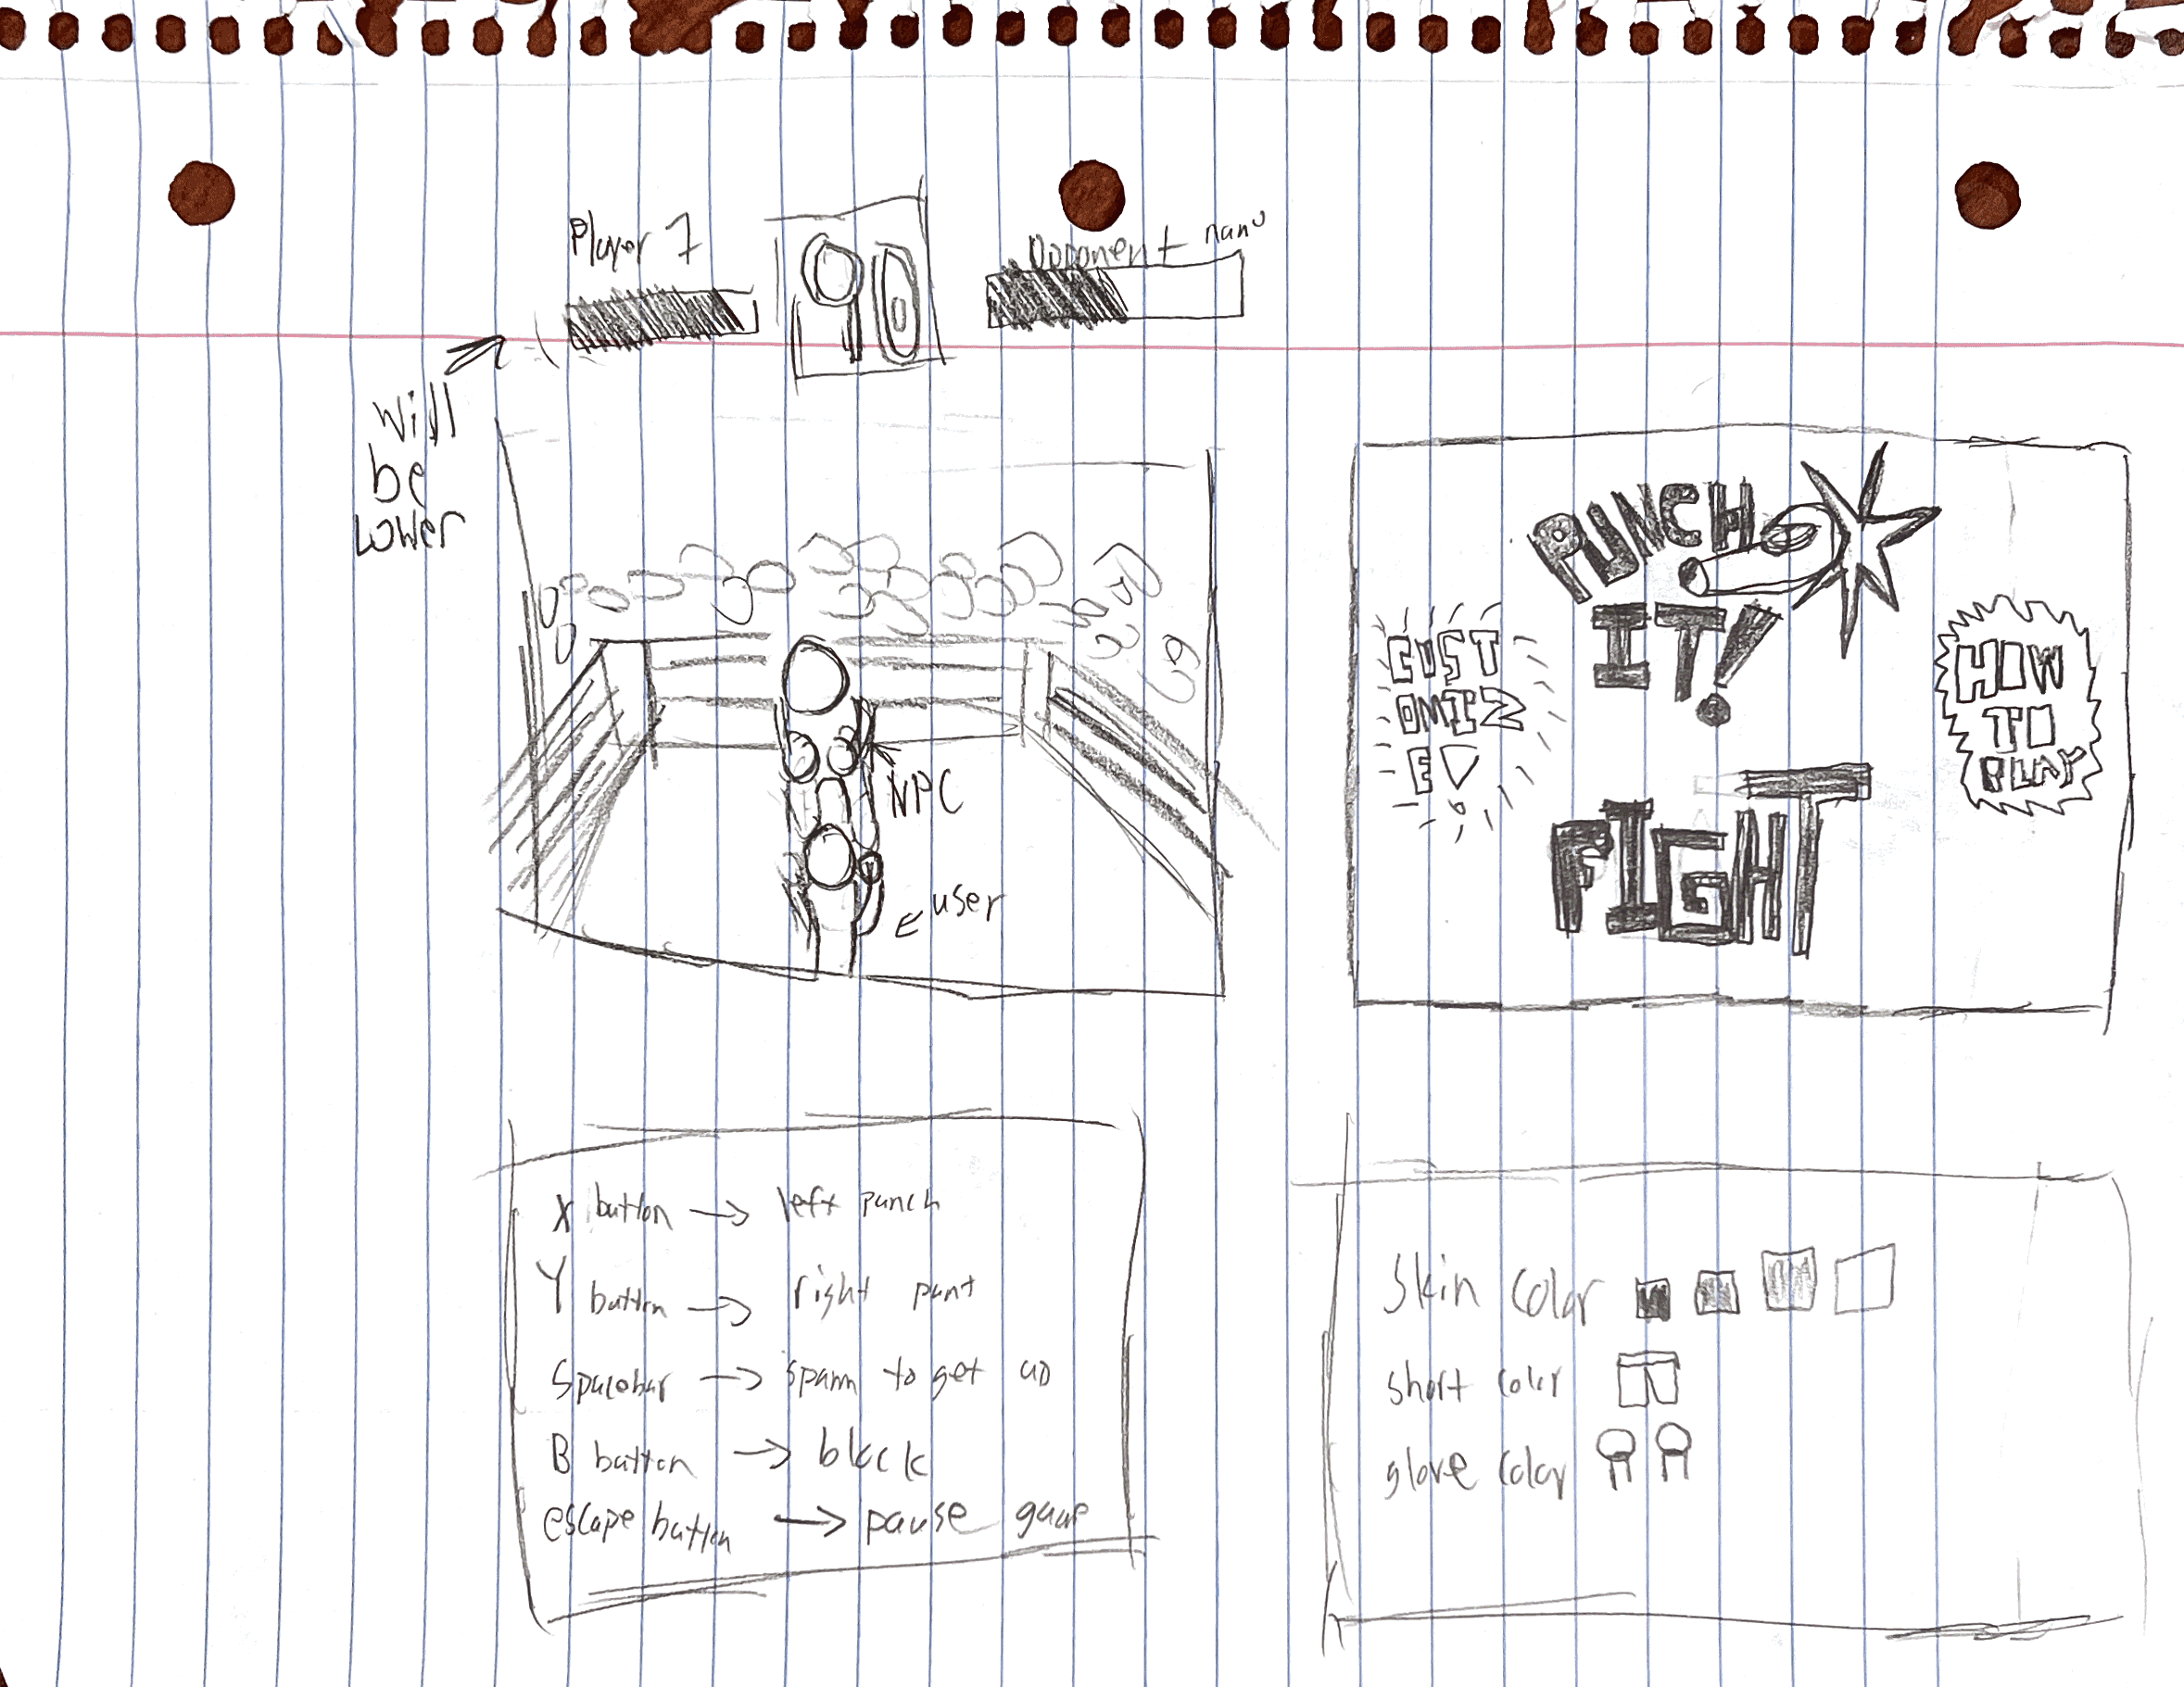 Player 1
Opponent name
Will
be
Lower
NPC
user
PUNCH
IT!
CUST
OMIZ
E
HOW
TO
PLAY
FIGHT
X button → left punch
Y button → right punt
Spacebar → spam to get up
B button → block
escape button → pause game
Skin color
short color
glove color